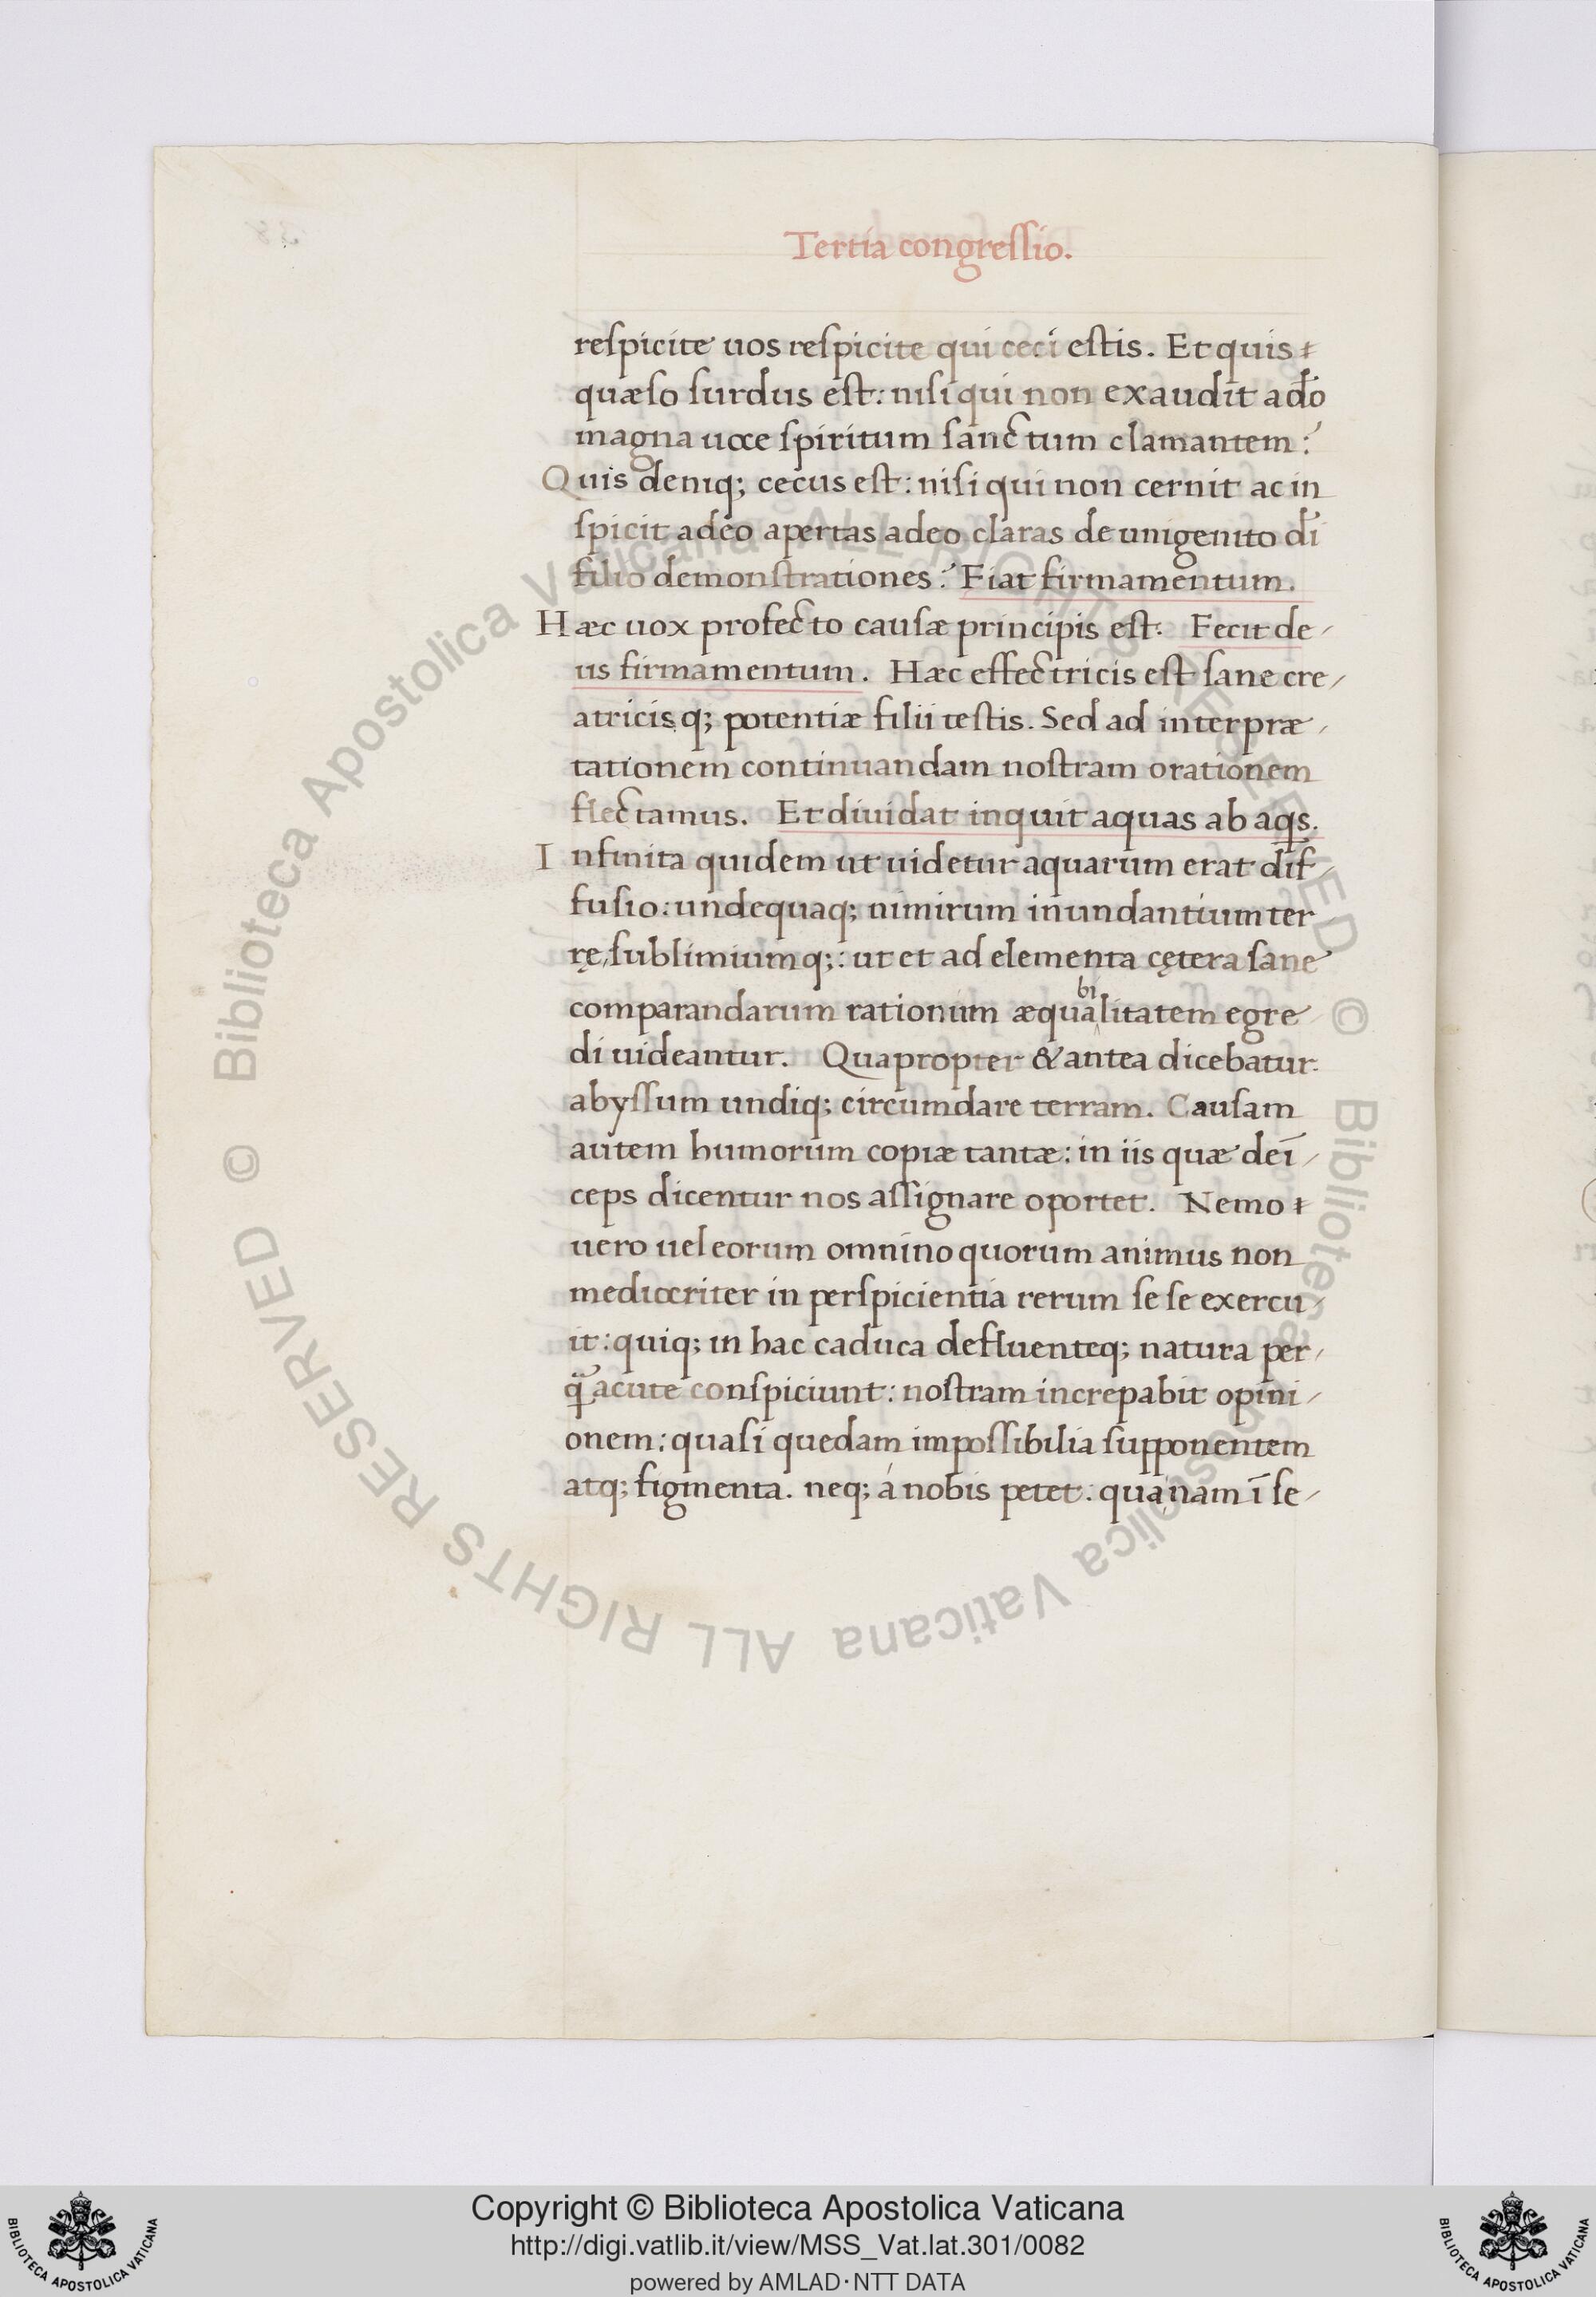 Tertia congressio.
respicite uos respicite qui ceci estis. Et quis
quæso surdus est: nisi qui non exaudit adō
magna uoce spiritum sanctum clamantem?
Quis deniq; cecus est: nisi qui non cernit ac in
spicit adeo apertas adeo claras de unigenito dī
filio demonstrationes? Fiat firmamentum.
Hæc uox profecto causæ principis est. Fecit de-
us firmamentum. Hæc effectricis est sane cre-
atricisq; potentiæ filii testis. Sed ad interpræ-
tationem continuandam nostram orationem
flectamus. Et diuidat inquit aquas ab aqs.
Infinita quidem ut uidetur aquarum erat dif-
fusio: undequaq; nimirum inundantium ter-
rę, sublimiumq;: ut et ad elementa cętera sane
bi
comparandarum rationum æqualitatem egre-
di uideantur. Quapropter & antea dicebatur
abyssum undiq; circumdare terram. Causam
autem humorum copiæ tantæ: in iis quæ deī-
ceps dicentur nos assignare oportet. Nemo
uero uel eorum omnino quorum animus non
mediocriter in perspicientia rerum se se exercu-
it: quiq; in hac caduca defluenteq; natura per-
q̃ acute conspiciunt: nostram increpabit opini-
onem: quasi quedam impossibilia supponentem
atq; figmenta. neq; á nobis petet: quánam ī se-
© Biblioteca Apostolica Vaticana ALL RIGHTS RESERVED
© Biblioteca Apostolica Vaticana ALL RIGHTS RESERVED
Copyright © Biblioteca Apostolica Vaticana
http://digi.vatlib.it/view/MSS_Vat.lat.301/0082
powered by AMLAD·NTT DATA
BIBLIOTECA APOSTOLICA VATICANA
BIBLIOTECA APOSTOLICA VATICANA